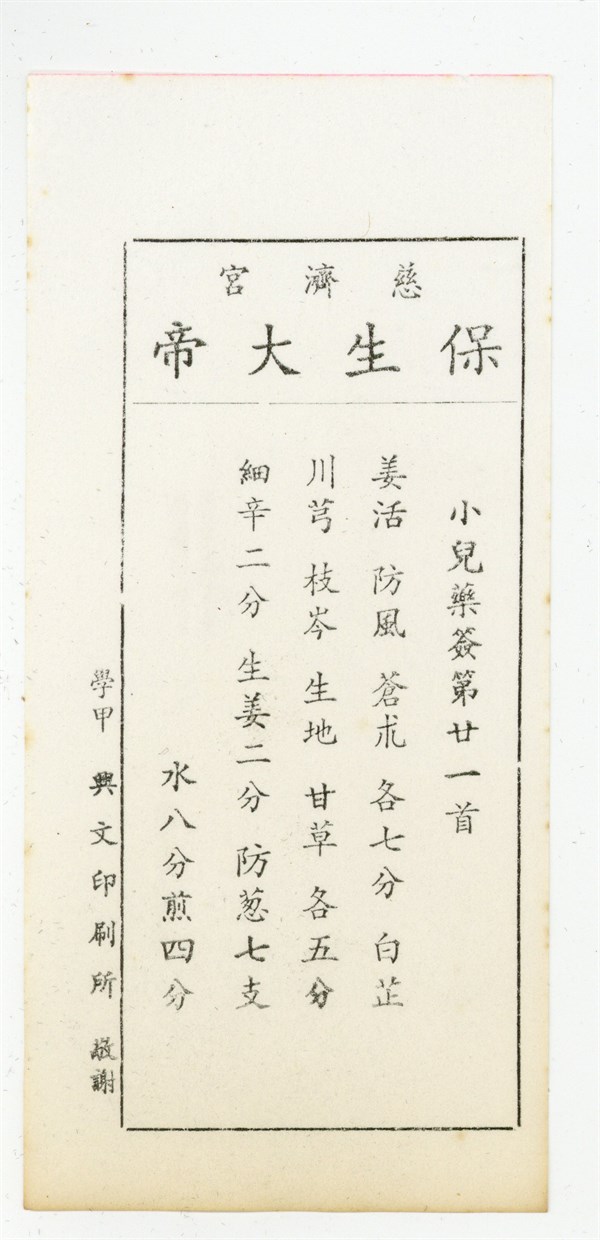 慈濟宮
保生大帝
小兒藥簽第廿一首
姜活 防風 蒼朮 各七分 白芷
川芎 枝岑 生地 甘草 各五分
細辛二分 生姜二分 防葱七支
水八分煎四分
學甲 興文印刷所 敬謝